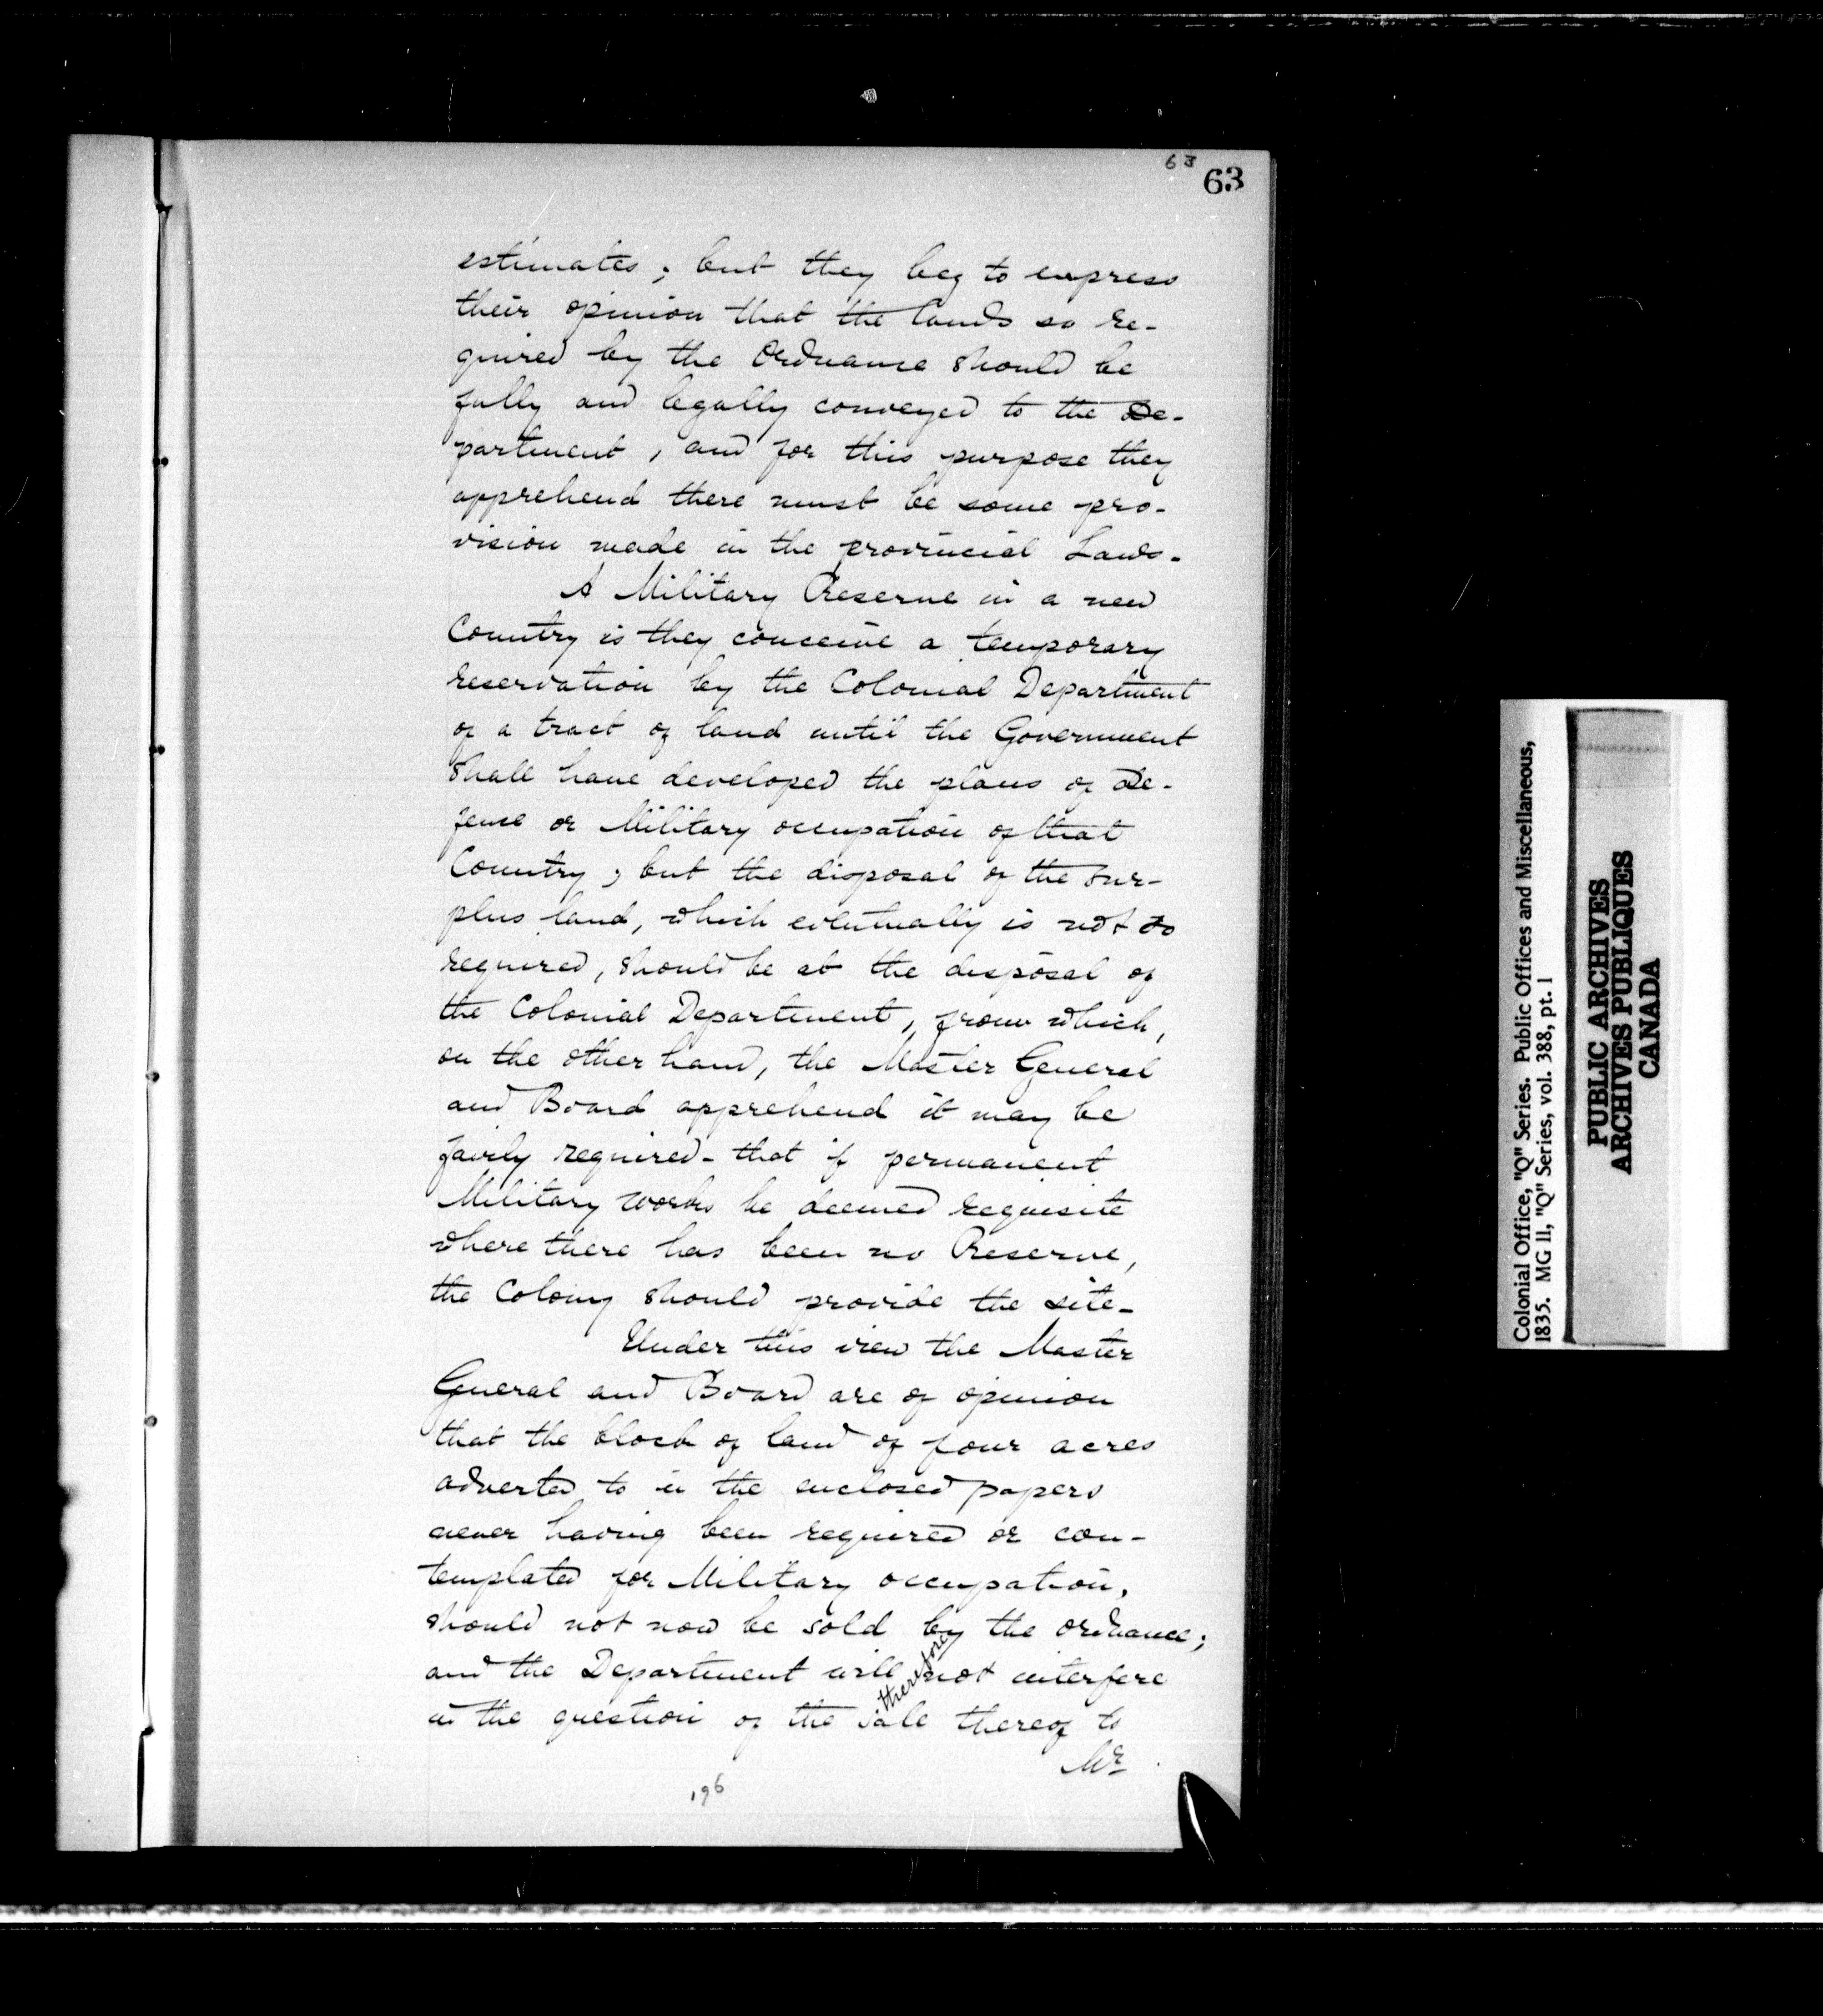 63
63
estimates; but they beg to express
their opinion that the lands so re-
quired by the Ordnance should be
fully and legally conveyed to the De-
partment, and for this purpose they
apprehend there must be some pro-
vision made in the provincial Laws.
A Military Reserve in a new
Country is they conceive a temporary
reservation by the Colonial Department
of a tract of land until the Government
shall have developed the plans of De-
fence or Military occupation of that
Country; but the disposal of the sur-
plus land, which eventually is not so
required, should be at the disposal of
the Colonial Department, from which,
on the other hand, the Master General
and Board apprehend it may be
fairly required - that if permanent
Military works be deemed requisite
where there has been no Reserve,
the Colony should provide the site -
Under this view the Master
General and Board are of opinion
that the block of land of four acres
adverted to in the enclosed papers
never having been required or con-
templated for Military occupation,
should not now be sold by the Ordnance;
and the Department will therefore not interfere
in the question of the sale thereof to
Mr
196
Colonial Office, "Q" Series. Public Offices and Miscellaneous,
1835. MG 11, "Q" Series, vol. 388, pt. 1
PUBLIC ARCHIVES
ARCHIVES PUBLIQUES
CANADA